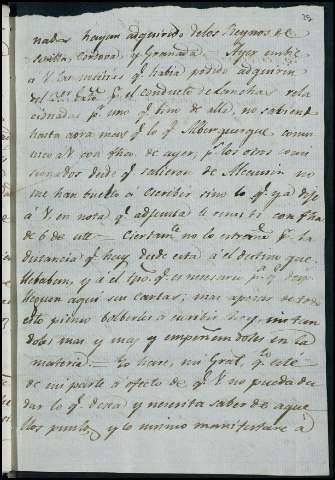 nadas hayan adquirido de los Reynos de
Sevilla, Cordova y Granada. Ayer embie
á V. las noticias q.e había podido adquirir
del por el conducto de Lancha, rela
cionadas p.r uno q.e vino de allá, no sabiendo
hasta aora mas q.e lo q.e Alberquerque comu
nico á V. con fha de ayer, p.s los otros comi
sionados desde q.e salieron de no
me han buelto á escribir sino lo q.e ya dije
á V. en nota q.e adjunta le remiti con fha
de 6 de este. Ciertam.te no lo estraño p.r la
distancia q.e hay desde esta á el destino que
llebaban, y á el tpo. q.e es necesario p.a q.e
lleguen aqui sus cartas; mas apesar de todo
esto pienso bolberles á escribir hoy, instan
dolos mas y mas y empeñandoles en la
materia. Yo haré, mi Gral, q.to esté
de mi parte á efecto de q.e V. no pueda du
dar lo q.e desea y necesita saber de aque
llos puntos, y lo mismo manifestare á